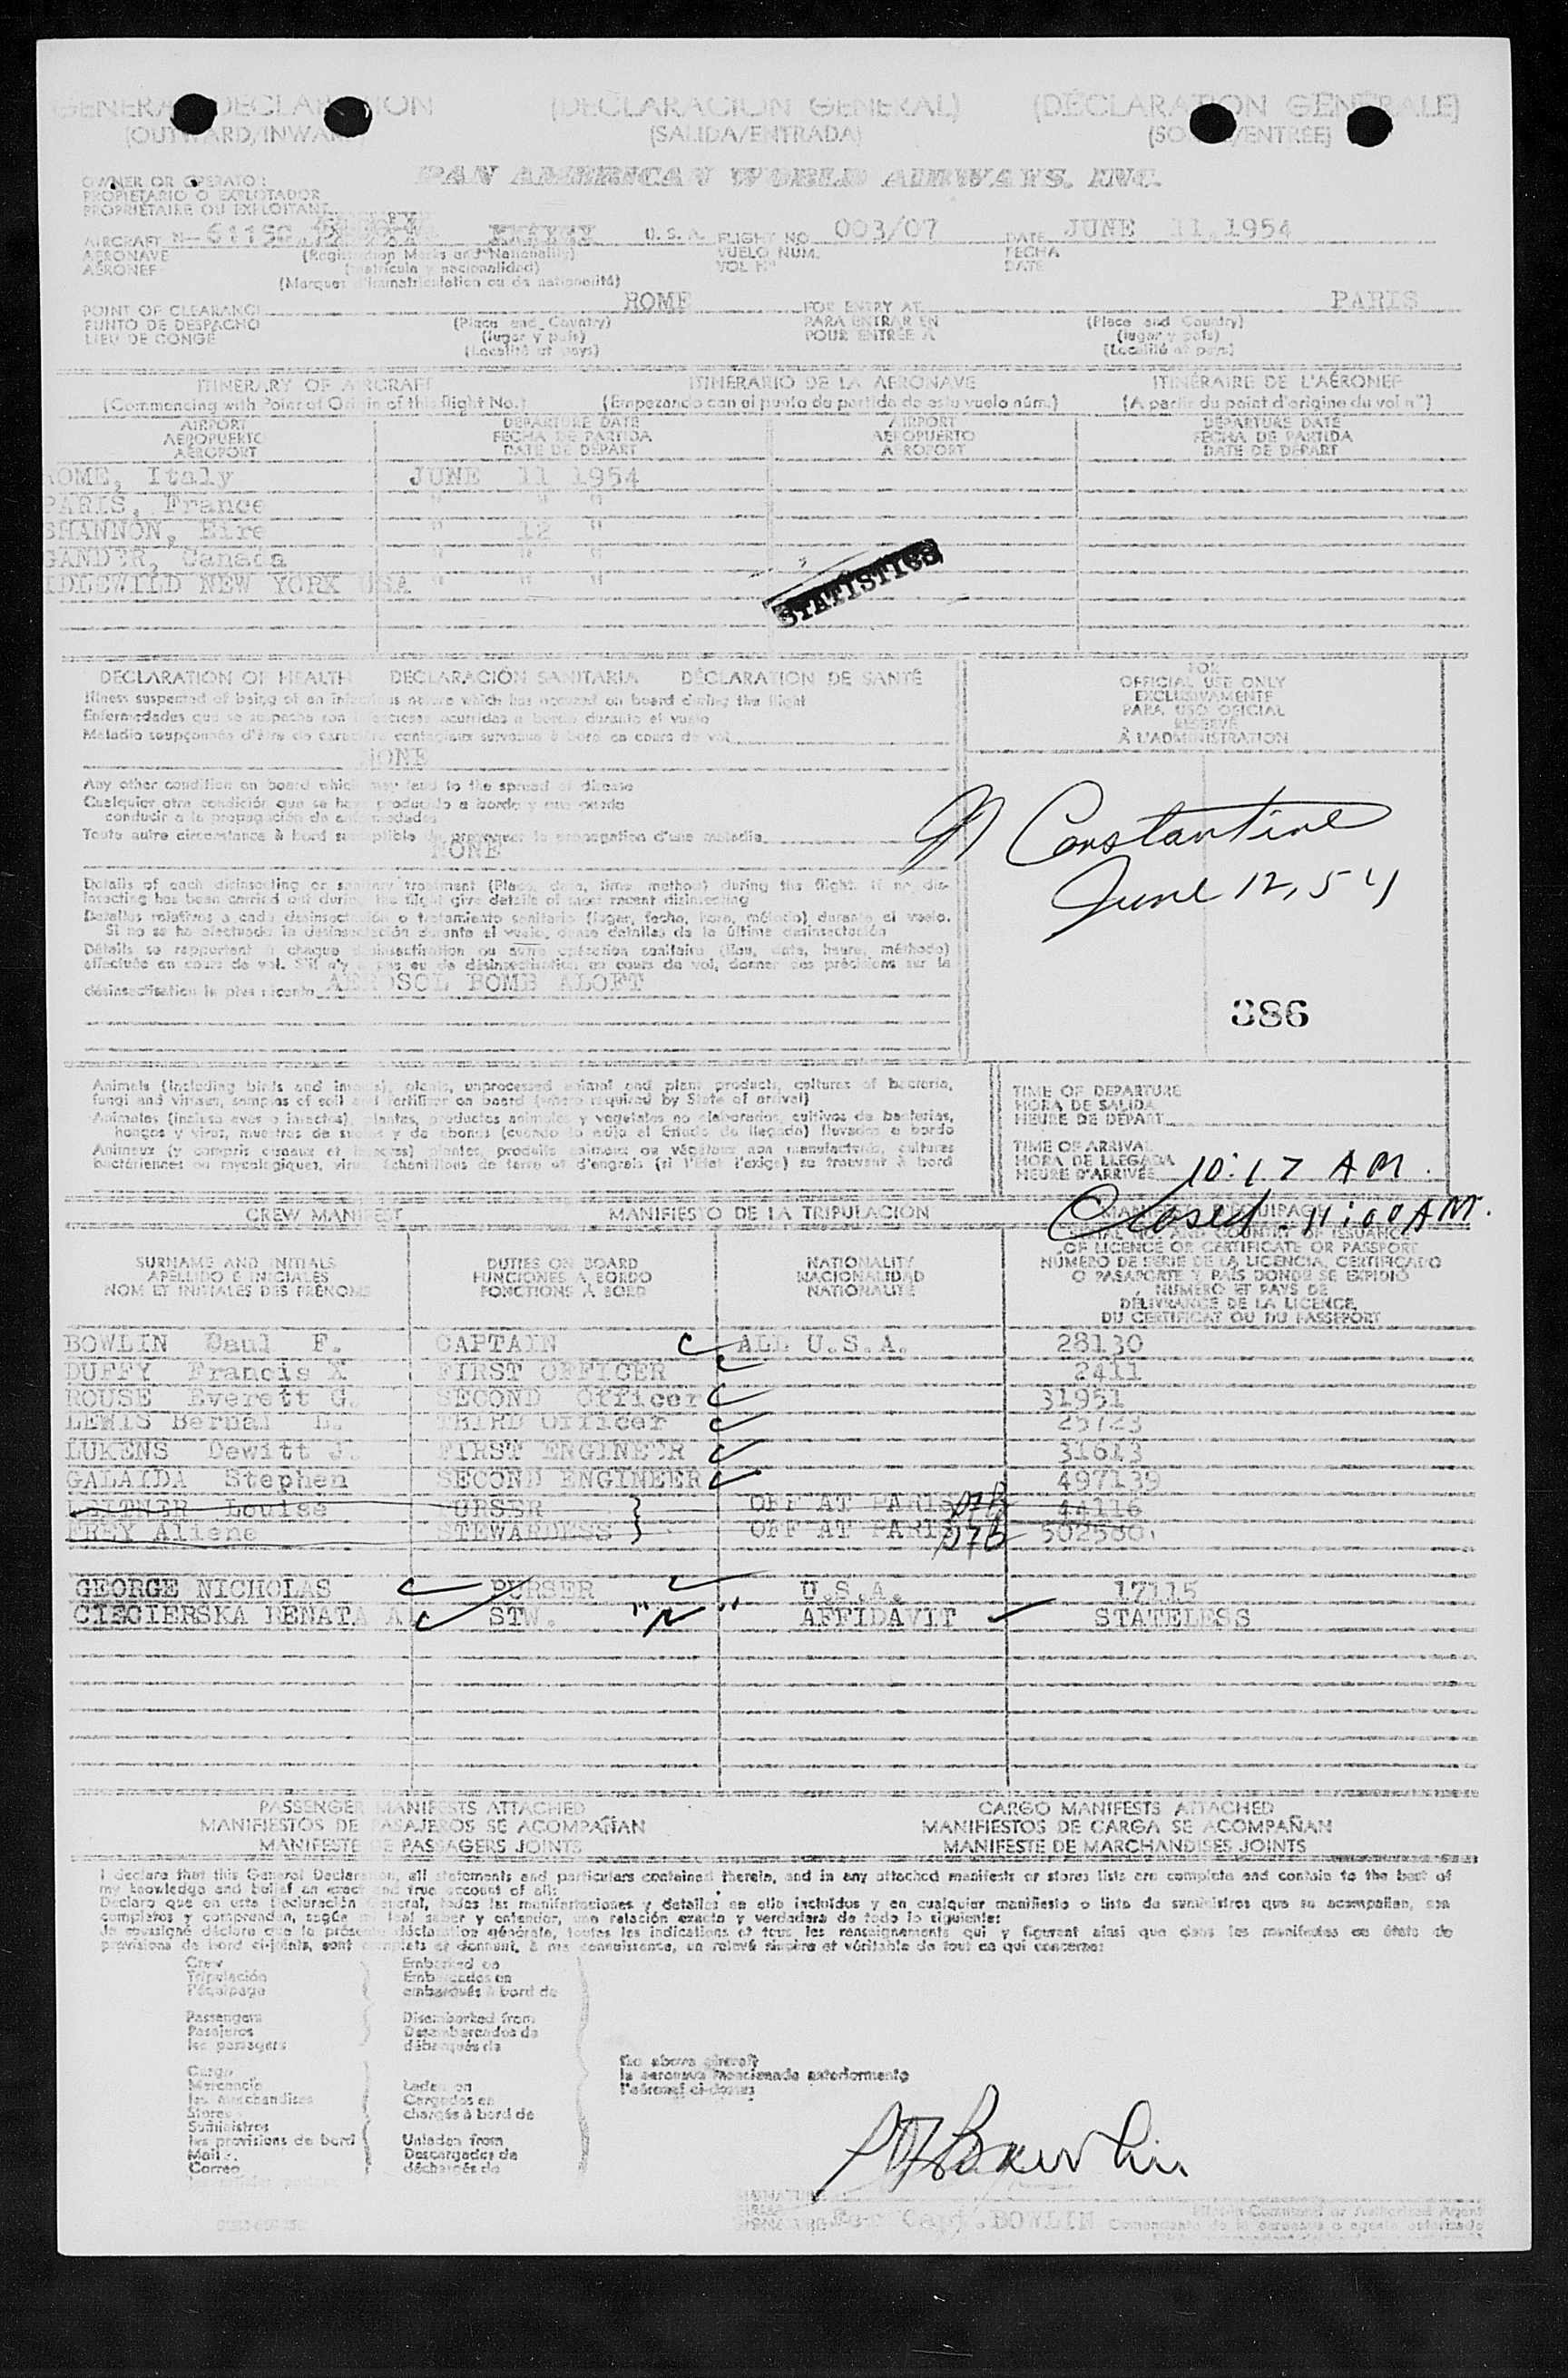 GENERAL DECLARATION (DECLARACION GENERAL) (DÉCLARATION GENERALE)
(OUTWARD/INWARD) (SALIDA/ENTRADA) (SORTIE/ENTREE)
OWNER OR OPERATOR PAN AMERICAN WORLD AIRWAYS, INC.
PROPIETARIO O EXPLOTADOR
PROPRIÉTAIRE OU EXPLOITANT
AIRCRAFT N- U.S.A. FLIGHT NO. 003/07 DATE JUNE 11, 1954
AERONAVE (Registration Marks and Nationality) VUELO NUM. FECHA
AÉRONEF (matrícula y nacionalidad) VOL Nº DATE
(Marques d'immatriculation ou de nationalité)
POINT OF CLEARANCE ROME FOR ENTRY AT PARIS
PUNTO DE DESPACHO (Place and Country) PARA ENTRAR EN (Place and Country)
LIEU DE CONGÉ (lugar y país) POUR ENTRÉE À (lugar y país)
(Localité et pays) (Localité et pays)
ITINERARY OF AIRCRAFT ITINERARIO DE LA AERONAVE ITINÉRAIRE DE L'AÉRONEF
(Commencing with Point of Origin of this flight No.) (Empezando con el punto de partida de este vuelo núm.) (A partir du point d'origine du vol nº)
AIRPORT DEPARTURE DATE AIRPORT DEPARTURE DATE
AEROPUERTO FECHA DE PARTIDA AEROPUERTO FECHA DE PARTIDA
AÉROPORT DATE DE DÉPART AÉROPORT DATE DE DÉPART
ROME, Italy JUNE 11 1954
PARIS, France " " "
SHANNON, Eire " 12 "
GANDER, Canada " " "
IDLEWILD NEW YORK USA " " "
STATISTICS
DECLARATION OF HEALTH DECLARACIÓN SANITARIA DÉCLARATION DE SANTÉ
Illness suspected of being of an infectious nature which has occurred on board during the flight
Enfermedades que se sospecha son infecciosas ocurridas a bordo durante el vuelo
Maladie soupçonnée d'être de caractère contagieux survenue à bord en cours de vol
NONE
Any other condition on board which may lead to the spread of disease
Cualquier otra condición que se haya producido a bordo y que pueda
conducir a la propagación de enfermedades
Toute autre circonstance à bord susceptible de provoquer la propagation d'une maladie
NONE
Details of each disinsecting or sanitary treatment (Place, date, time, method) during the flight. If no disinsecting
insecting has been carried out during the flight give details of most recent disinsecting
Detalles relativos a cada desinsectación o tratamiento sanitario (lugar, fecha, hora, método) durante el vuelo.
Si no se ha efectuado la desinsectación durante el vuelo, dense detalles de la última desinsectación
Détails se rapportant à chaque désinsectisation ou autre opération sanitaire (lieu, date, heure, méthode)
effectuée en cours de vol. S'il n'y a pas eu de désinsectisation en cours de vol, donner des précisions sur la
désinsectisation la plus récente AEROSOL BOMB ALOFT
FOR
OFFICIAL USE ONLY
EXCLUSIVAMENTE
PARA USO OFICIAL
RESERVÉ
À L'ADMINISTRATION
Constantine
June 12, 54
386
Animals (including birds and insects), plants, unprocessed animal and plant products, cultures of bacteria,
fungi and viruses, samples of soil and fertilizer on board (where required by State of arrival)
Animales (inclusa aves o insectos), plantas, productos animales y vegetales no elaborados, cultivos de bacterias,
hongos y virus, muestras de suelos y de abonos (cuando lo exija el Estado de llegada) llevados a bordo
Animaux (y compris oiseaux et insectes) plantes, produits animaux ou végétaux non manufacturés, cultures
bactériennes ou mycologiques, virus, échantillons de terre et d'engrais (si l'État l'exige) se trouvant à bord
TIME OF DEPARTURE
HORA DE SALIDA
HEURE DE DÉPART
TIME OF ARRIVAL
HORA DE LLEGADA
HEURE D'ARRIVÉE 10:17 AM.
Closed. 11:00 AM.
CREW MANIFEST MANIFIESTO DE LA TRIPULACION
SURNAME AND INITIALS DUTIES ON BOARD NATIONALITY SERIAL NO. AND COUNTRY OF ISSUANCE
APELLIDO E INICIALES FUNCIONES A BORDO NACIONALIDAD OF LICENCE OR CERTIFICATE OR PASSPORT
NOM ET INITIALES DES PRÉNOMS FONCTIONS À BORD NATIONALITÉ NUMERO DE SERIE DE LA LICENCIA, CERTIFICADO
O PASAPORTE Y PAÍS DONDE SE EXPIDIÓ
NUMERO ET PAYS DE
DÉLIVRANCE DE LA LICENCE,
DU CERTIFICAT OU DU PASSEPORT
BOWLIN Paul F. CAPTAIN ALL U.S.A. 28130
DUFFY Francis X FIRST OFFICER 2411
ROUSE Everett G. SECOND Officer 31951
LEWIS Bernal L. THIRD Officer 25723
LUKENS Dewitt J. FIRST ENGINEER 31613
GALAIDA Stephen SECOND ENGINEER 497139
LEITNER Louise PURSER OFF AT PARIS 44116
FREY Aliene STEWARDESS OFF AT PARIS 502580
GEORGE NICHOLAS PURSER U.S.A. 17115
CIECIERSKA RENATA A STW. AFFIDAVIT STATELESS
PASSENGER MANIFESTS ATTACHED CARGO MANIFESTS ATTACHED
MANIFIESTOS DE PASAJEROS SE ACOMPAÑAN MANIFIESTOS DE CARGA SE ACOMPAÑAN
MANIFESTE DE PASSAGERS JOINTS MANIFESTE DE MARCHANDISES JOINTS
I declare that this General Declaration, all statements and particulars contained therein, and in any attached manifests or stores lists are complete and contain to the best of
my knowledge and belief an exact and true account of all:
Declaro que en esta Declaración General, todas las manifestaciones y detalles en ella incluídos y en cualquier manifiesto o lista de suministros que se acompañan, son
completos y comprenden, según mi leal saber y entender, una relación exacta y verdadera de todo lo siguiente:
Je soussigné déclare que la présente déclaration générale, toutes les indications et tous les renseignements qui y figurent ainsi que dans les manifestes ou états de
provisions de bord ci-joints, sont complets et donnent, à ma connaissance, un relevé sincère et véritable de tout ce qui concerne:
Crew Embarked on
Tripulación Embarcados en
l'équipage embarqués à bord de
Passengers Disembarked from
Pasajeros Desembarcados de
les passagers débarqués de
the above aircraft
la aeronave mencionada anteriormente
l'aéronef ci-dessus
Cargo
Mercancía Laden on
les marchandises Cargados en
Stores chargés à bord de
Suministros
les provisions de bord Unladen from
Mail Descargados de
Correo déchargés de
PF Bowlin
SIGNATURE For Capt. BOWLIN Pilot in Command or Authorized Agent
Comandante de la aeronave o agente autorizado